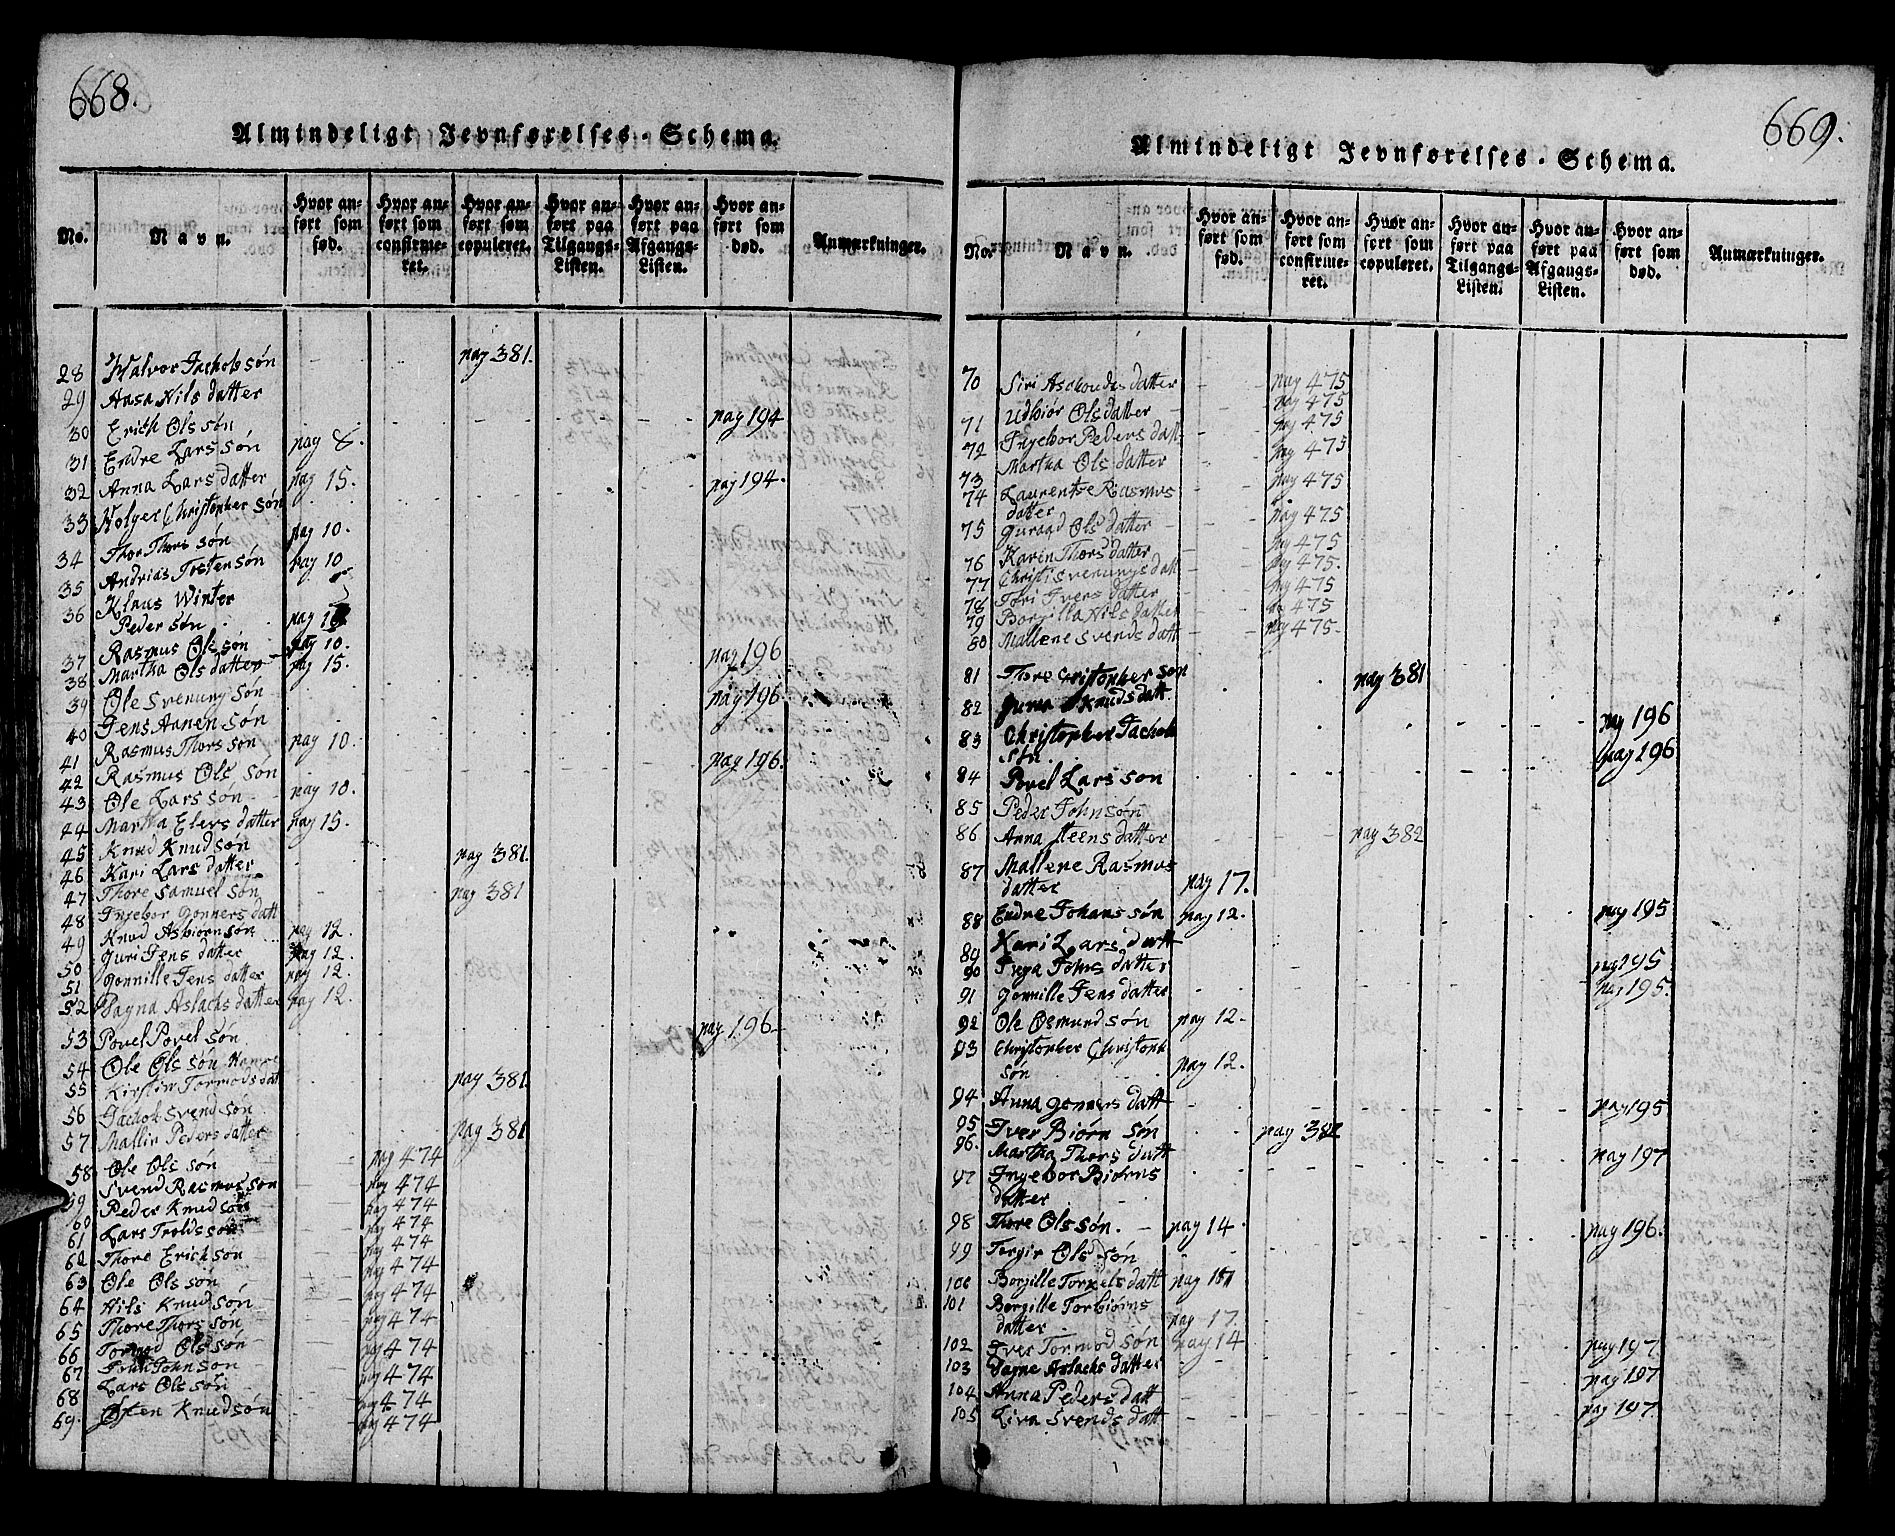 668.
Almindeligt Jevnførelses-Schema.
No. Navn. Hvor anført som fød. Hvor anført som confirmeret. Hvor anført som copuleret. Hvor anført paa Tilgangs-Listen. Hvor anført paa Afgangs-Listen. Hvor anført som død. Anmærkninger.
28 Halvor Jachobsøn pag 381.
29 Aasa Nils datter
30 Erich Olssøn pag 194
31 Endre Lars søn pag 8.
32 Anna Lars datter pag 15. pag 194.
33 Holger Christopher søn
34 Thor Thors søn pag 10.
35 Andrias Tostensøn pag 10
36 Klaus Winter
Peder søn pag 10
37 Rasmus Ols søn pag 10. pag 196
38 Martha Olsdatter pag 15.
39 Ole Svenung søn pag 196
40 Jens Aanen søn
41 Rasmus Thors søn pag 10. pag 196.
42 Rasmus Ols søn
43 Ole Lars søn pag 10.
44 Martha Elers datter pag 15.
45 Knud Knudsøn pag 381.
46 Kari Lars datter
47 Thore Samuel søn pag 381
48 Ingebor Gonners datt
49 Knud Asbiørnsøn pag 12.
50 Guri Jens datter pag 12.
51 Gonnille Jens datter pag 12.
52 Dagna Aslachs datter pag 12.
53 Povel Povel søn pag. 196.
54 Ole Ols søn
55 Kirstin Tormods dat pag 381
56 Jachob Svend søn
57 Mallin Peders datter pag 381
58 Ole Ols søn pag 474
59 Svend Rasmus søn pag 474
60 Peder Knud søn pag 474
61 Lars Trolds søn pag 474
62 Thore Erich søn pag 474
63 Ole Ols søn pag 474
64 Nils Knud søn pag 474
65 Thore Thors søn pag 474
66 Tormod Olssøn pag 474
67 John søn pag 474
68 Lars Ols søn pag 474
69. Osten Knudsøn pag 474
669.
Almindeligt Jevnførelses-Schema.
No. Navn. Hvor anført som fød. Hvor anført som confirmeret. Hvor anført som copuleret. Hvor anført paa Tilgangs-Listen. Hvor anført paa Afgangs-Listen. Hvor anført som død. Anmærkninger.
70 Siri datter pag 475
71 Udbiør Olsdatter pag 475
72 Ingebor Peders datt pag 475
73 Martha Ols datter pag 475
74 Laurentse Rasmus
datter pag 475
75 Ols datter pag 475
76 Karin Thors datter pag 475
77 Christi Svenungs datt pag 475.
78 Tori Ivers datter pag 475
79 Borgilla Nils datter pag 475
80 Mallene Svends datt pag 475.
81 Thore Cristopher søn pag 381
82 Knuds datt
83 Christopher Jachob
søn pag 196
84 Povel Lars søn pag 196
85 Peder Johnsøn
86 Anna Steens datter pag 382
87 Mallene Rasmus
datter pag 17.
88 Endre Johans søn pag 12. pag 195
89 Kari Lars datt
90 Johns datter pag 195
91 Gonnille Jens datter pag 195.
92 Ole Osmund søn pag 12.
93 Christopher Christoph
søn pag 12.
94 Anna Gonners datt pag 195
95 Iver Biørn søn pag 382
96. Martha Thors datt pag 197
97 Ingebor Biørns
datter
98 Thore Ols søn. pag 14 pag 196.
99 Torgir Ols søn
100 Borgille Torkels datt pag 17
101 Borgille Torbiørns
datter pag 17.
102 Iver Tormod søn pag 14 pag 197.
103 Dagne Aslachs datter pag 197
104 Anna Peders datt pag 197.
105 Liva Svends datt